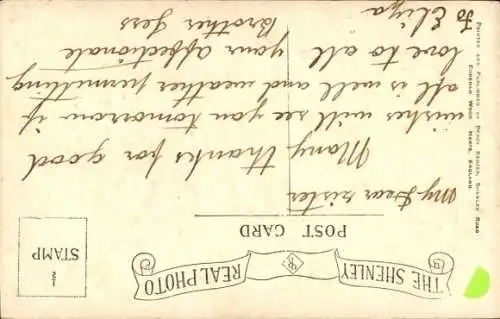 THE SHENLEY REAL PHOTO
POST CARD
½
STAMP
My Dear sister
Many thanks for good
wishes will see you tomorrow if
all is well and weather permitting
love to all your affectionate
To Eliza Brother Jess
PRINTED AND PUBLISHED BY PERCY SIMMS, SHENLEY ROAD
BOREHAM WOOD HERTS, ENGLAND.